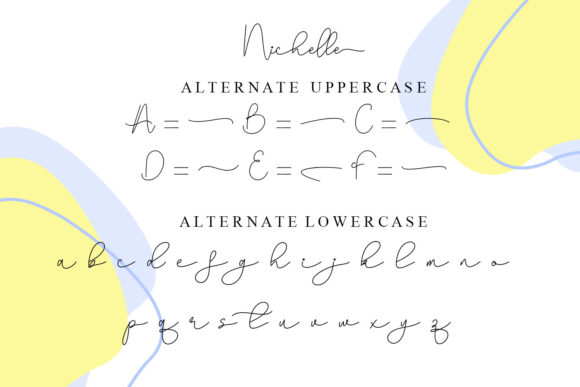 Nichelle
ALTERNATE UPPERCASE
A = B = C =
D = E = F =
ALTERNATE LOWERCASE
a b c d e f g h i j k l m n o
p q r s t u v w x y z